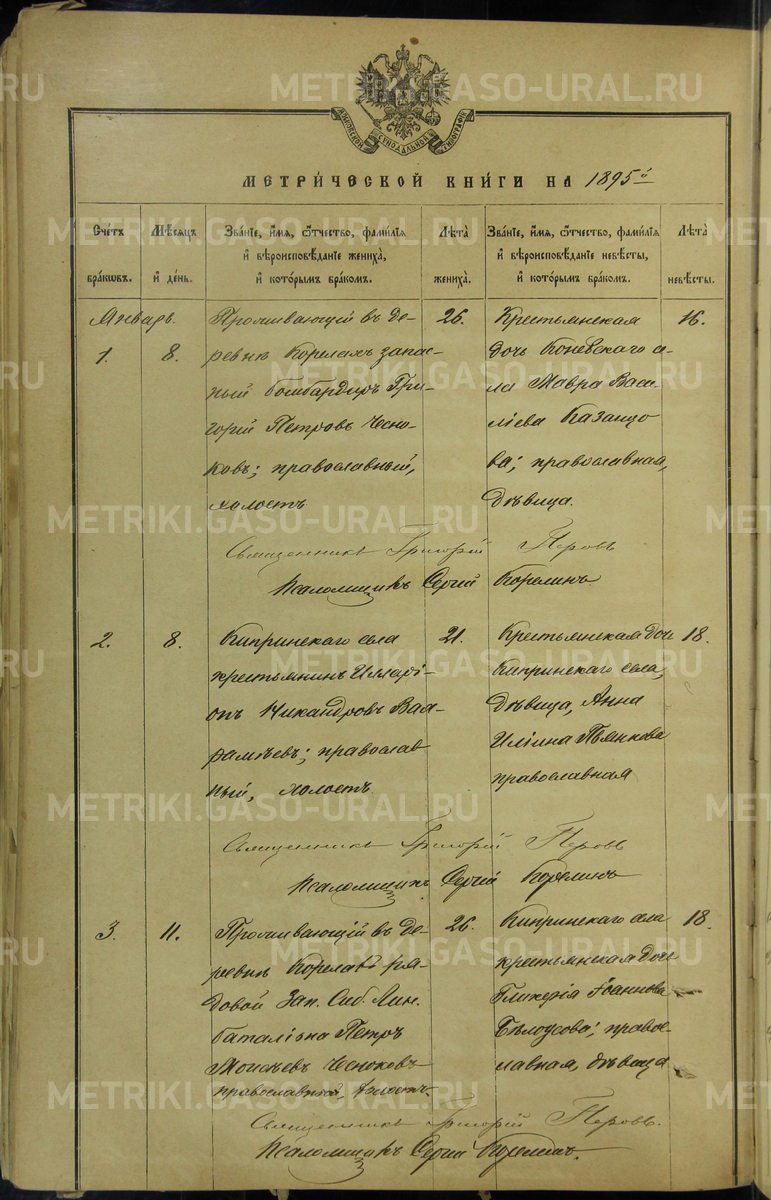 METRIKI.GASO-URAL.RU
МОСКОВСКОЙ СѴНОДАЛЬНОЙ ТИПОГРАФІИ
МЕТРИ́ЧЕСКОЙ КНИ́ГИ НА 1895й
Сче́тъ бра́кѡвъ.
Мѣ́сяцъ и́ де́нь.
Зва́нїе, и́мя, ѻ́тчество, фами́лїя и́ вѣроисповѣ́данїе жениха́, и́ кото́рымъ бра́комъ.
Лѣта̀ жениха̀.
Зва́нїе, и́мя, ѻ́тчество, фами́лїя и́ вѣроисповѣ́данїе невѣ́сты, и́ кото́рымъ бра́комъ.
Лѣта̀ невѣ́сты.
Январь.
1.
8.
Проживающій въ де-
ревнѣ Корелахъ запас-
ный бомбардиръ Гри-
горій Петровъ Чесно-
ковъ; православный,
холостъ
26.
Крестьянская
дочь Коневскаго се-
ла Мавра Васи-
ліева Казанцо
ва; православная,
дѣвица.
16.
Священникъ Григорій Перовъ
Псаломщикъ Сергій Корелинъ
2.
8.
Кипринскаго села
крестьянинъ Илларі-
онъ Никандровъ Вар-
рамѣевъ; православ
ный, холостъ
21.
Крестьянская дочь
Кипринскаго села,
дѣвица, Анна
Иліина Пьянкова
православная
18.
Священникъ Григорій Перовъ
Псаломщикъ Сергій Корелинъ
3.
11.
Проживающій въ де-
ревнѣ Корелахъ ря-
довой Зап. Сиб. Лин.
баталіона Петръ
Моисѣевъ Чесноковъ
православный, холостъ.
26.
Кипринскаго села
крестьянская дочь
Гликерія Іоаннова
Бѣлоусова; право-
славная, дѣвица
18.
Священникъ Григорій Перовъ.
Псаломщикъ Сергій Корелинъ.